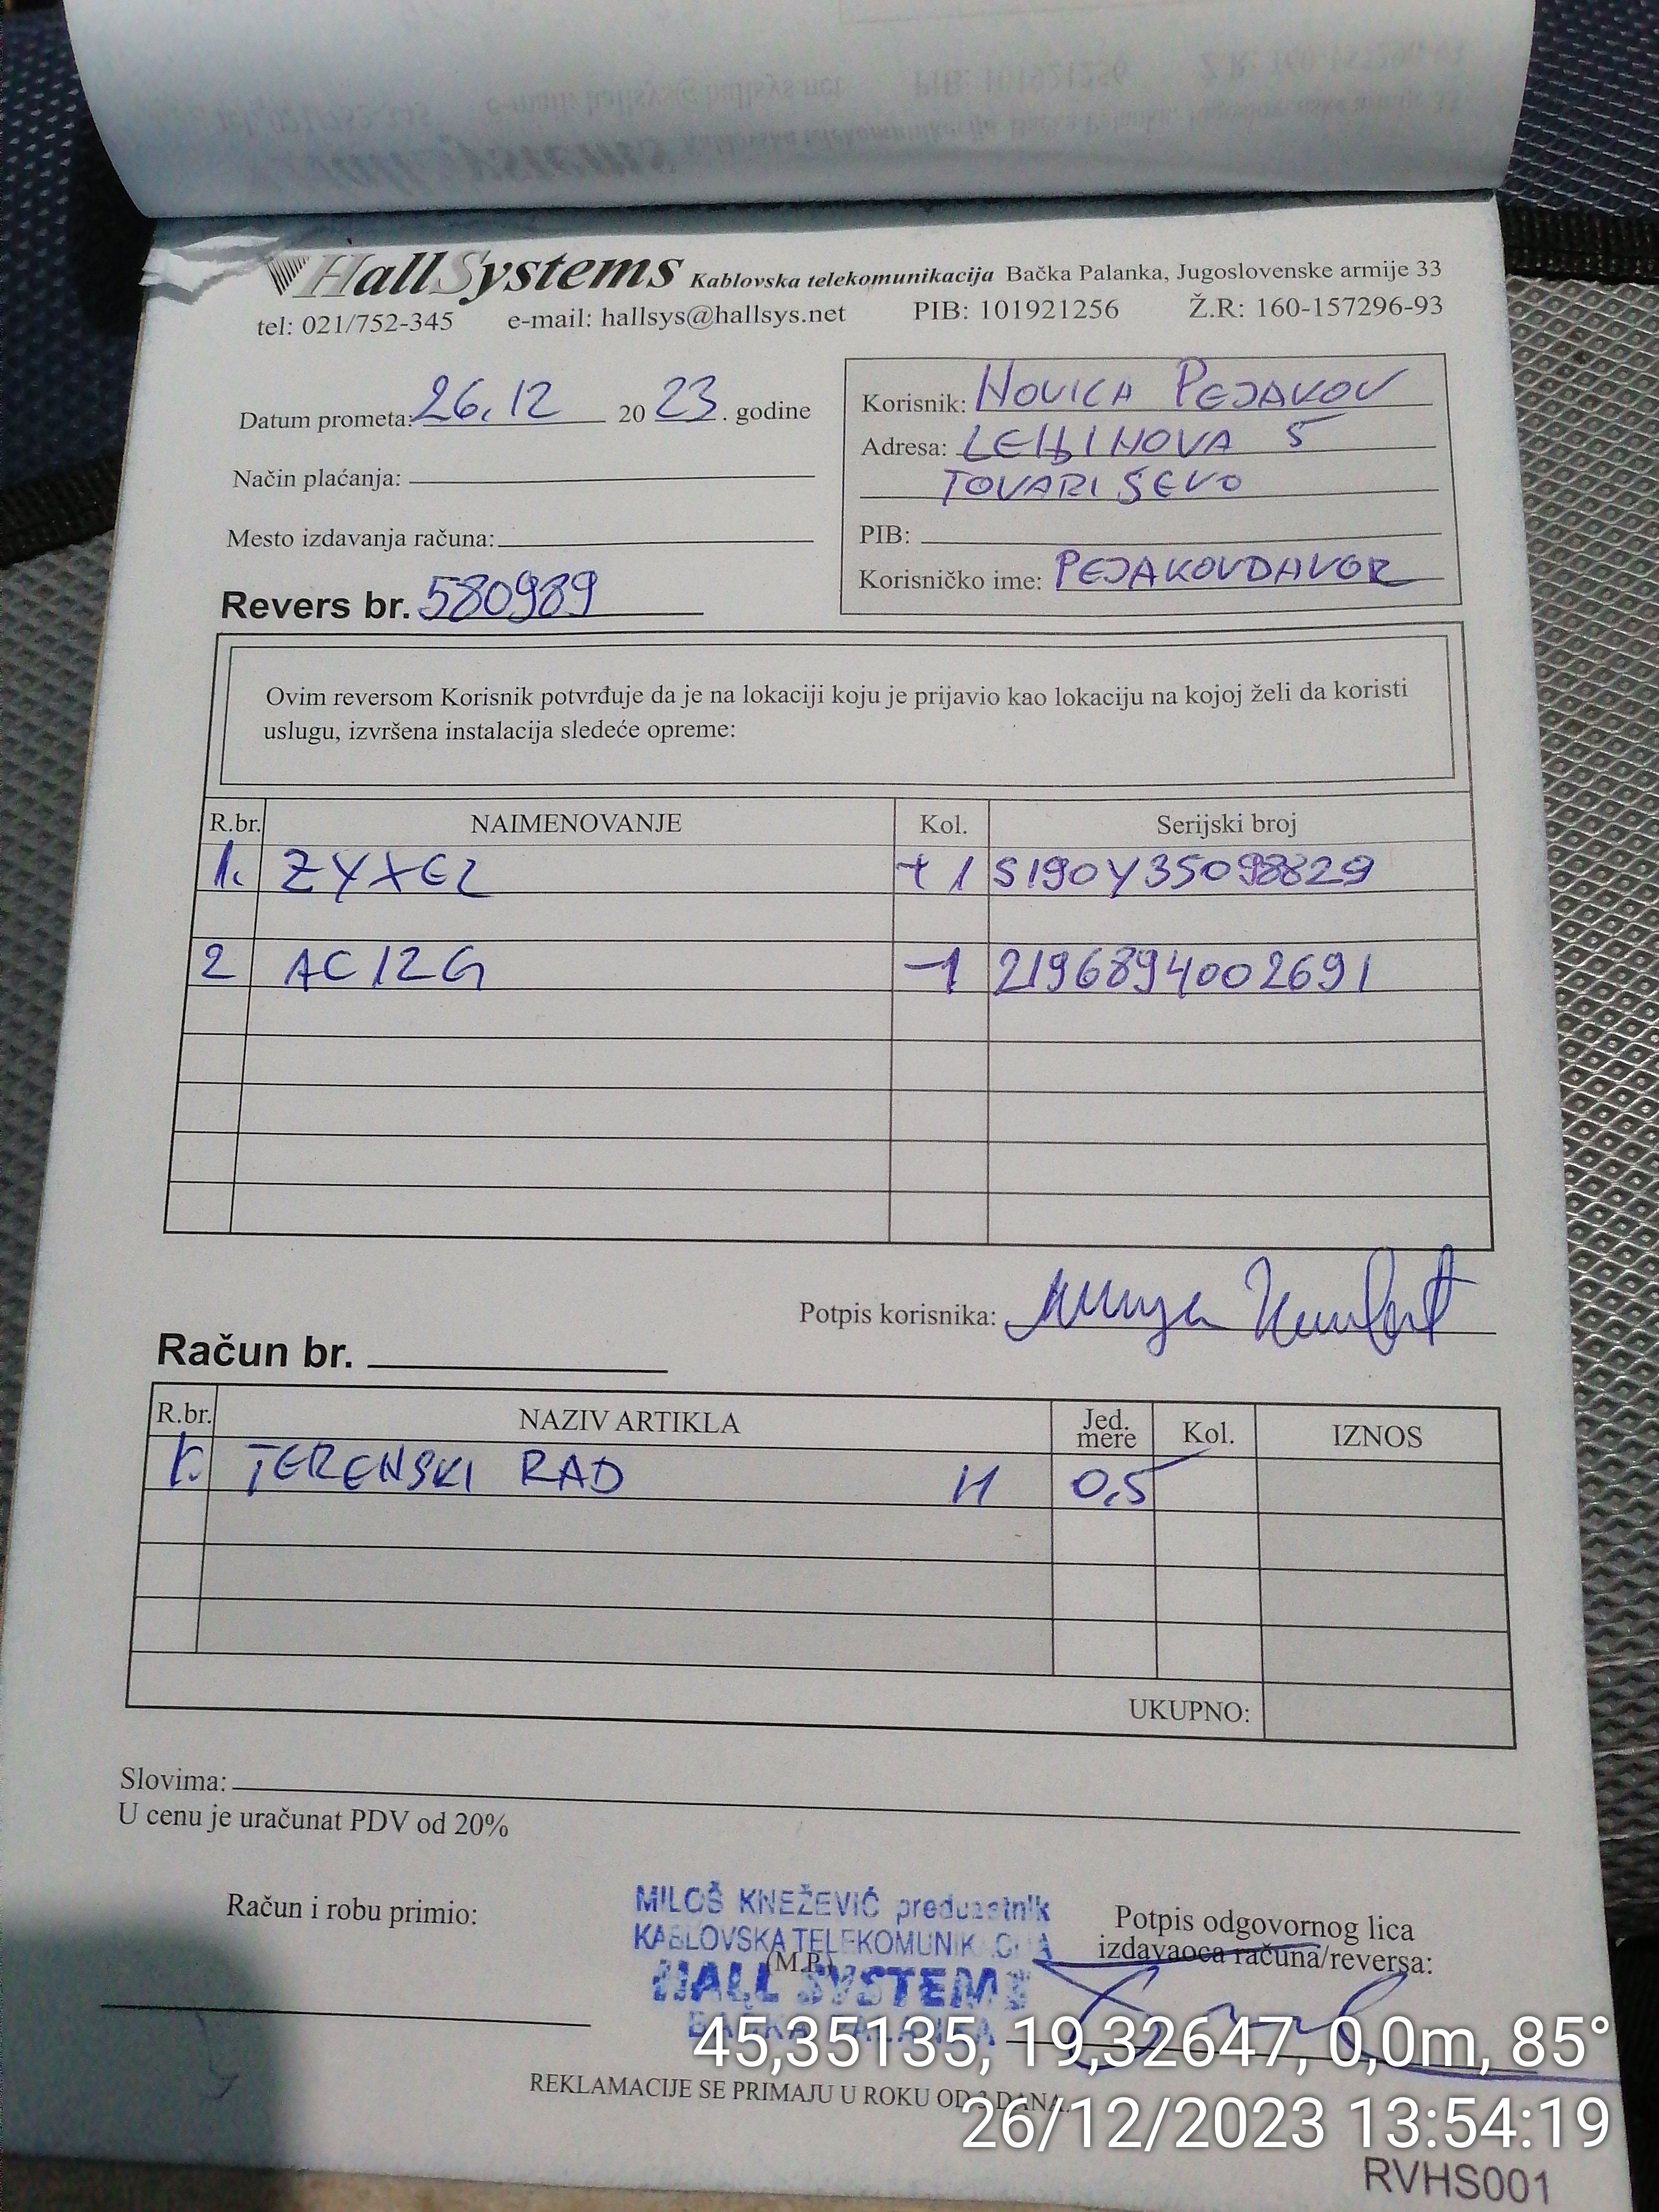 HallSystems Kablovska telekomunikacija Bačka Palanka, Jugoslovenske armije 33
tel: 021/752-345 e-mail: hallsys@hallsys.net PIB: 101921256 Ž.R: 160-157296-93
Datum prometa: 26.12 2023. godine
Način plaćanja:
Mesto izdavanja računa:
Revers br. 580989
Korisnik: NOVICA PEJAKOV
Adresa: LENJINOVA 5
TOVARIŠEVO
PIB:
Korisničko ime: PEJAKOVDAVOR
Ovim reversom Korisnik potvrđuje da je na lokaciji koju je prijavio kao lokaciju na kojoj želi da koristi
uslugu, izvršena instalacija sledeće opreme:
R.br. NAIMENOVANJE Kol. Serijski broj
1. ZYXEL +1 S190Y35098829
2 AC12G -1 2196894002691
Potpis korisnika:
Račun br.
R.br. NAZIV ARTIKLA Jed. mere Kol. IZNOS
1. TERENSKI RAD H 0,5
UKUPNO:
Slovima:
U cenu je uračunat PDV od 20%
Račun i robu primio:
MILOŠ KNEŽEVIĆ preduzetnik
KABLOVSKA TELEKOMUNIKACIJA
(M.P.)
HALL SYSTEMS
BAČKA PALANKA
Potpis odgovornog lica
izdavaoca računa/reversa:
REKLAMACIJE SE PRIMAJU U ROKU OD DANA.
45,35135, 19,32647, 0,0m, 85°
26/12/2023 13:54:19
RVHS001